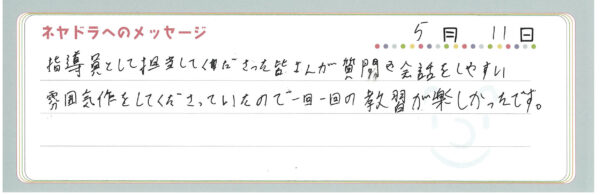 ネヤドラへのメッセージ 5月 11日
指導員として担当してくださった皆さんが質問や会話をしやすい
雰囲気作をしてくださっていたので一回一回の教習が楽しかったです。